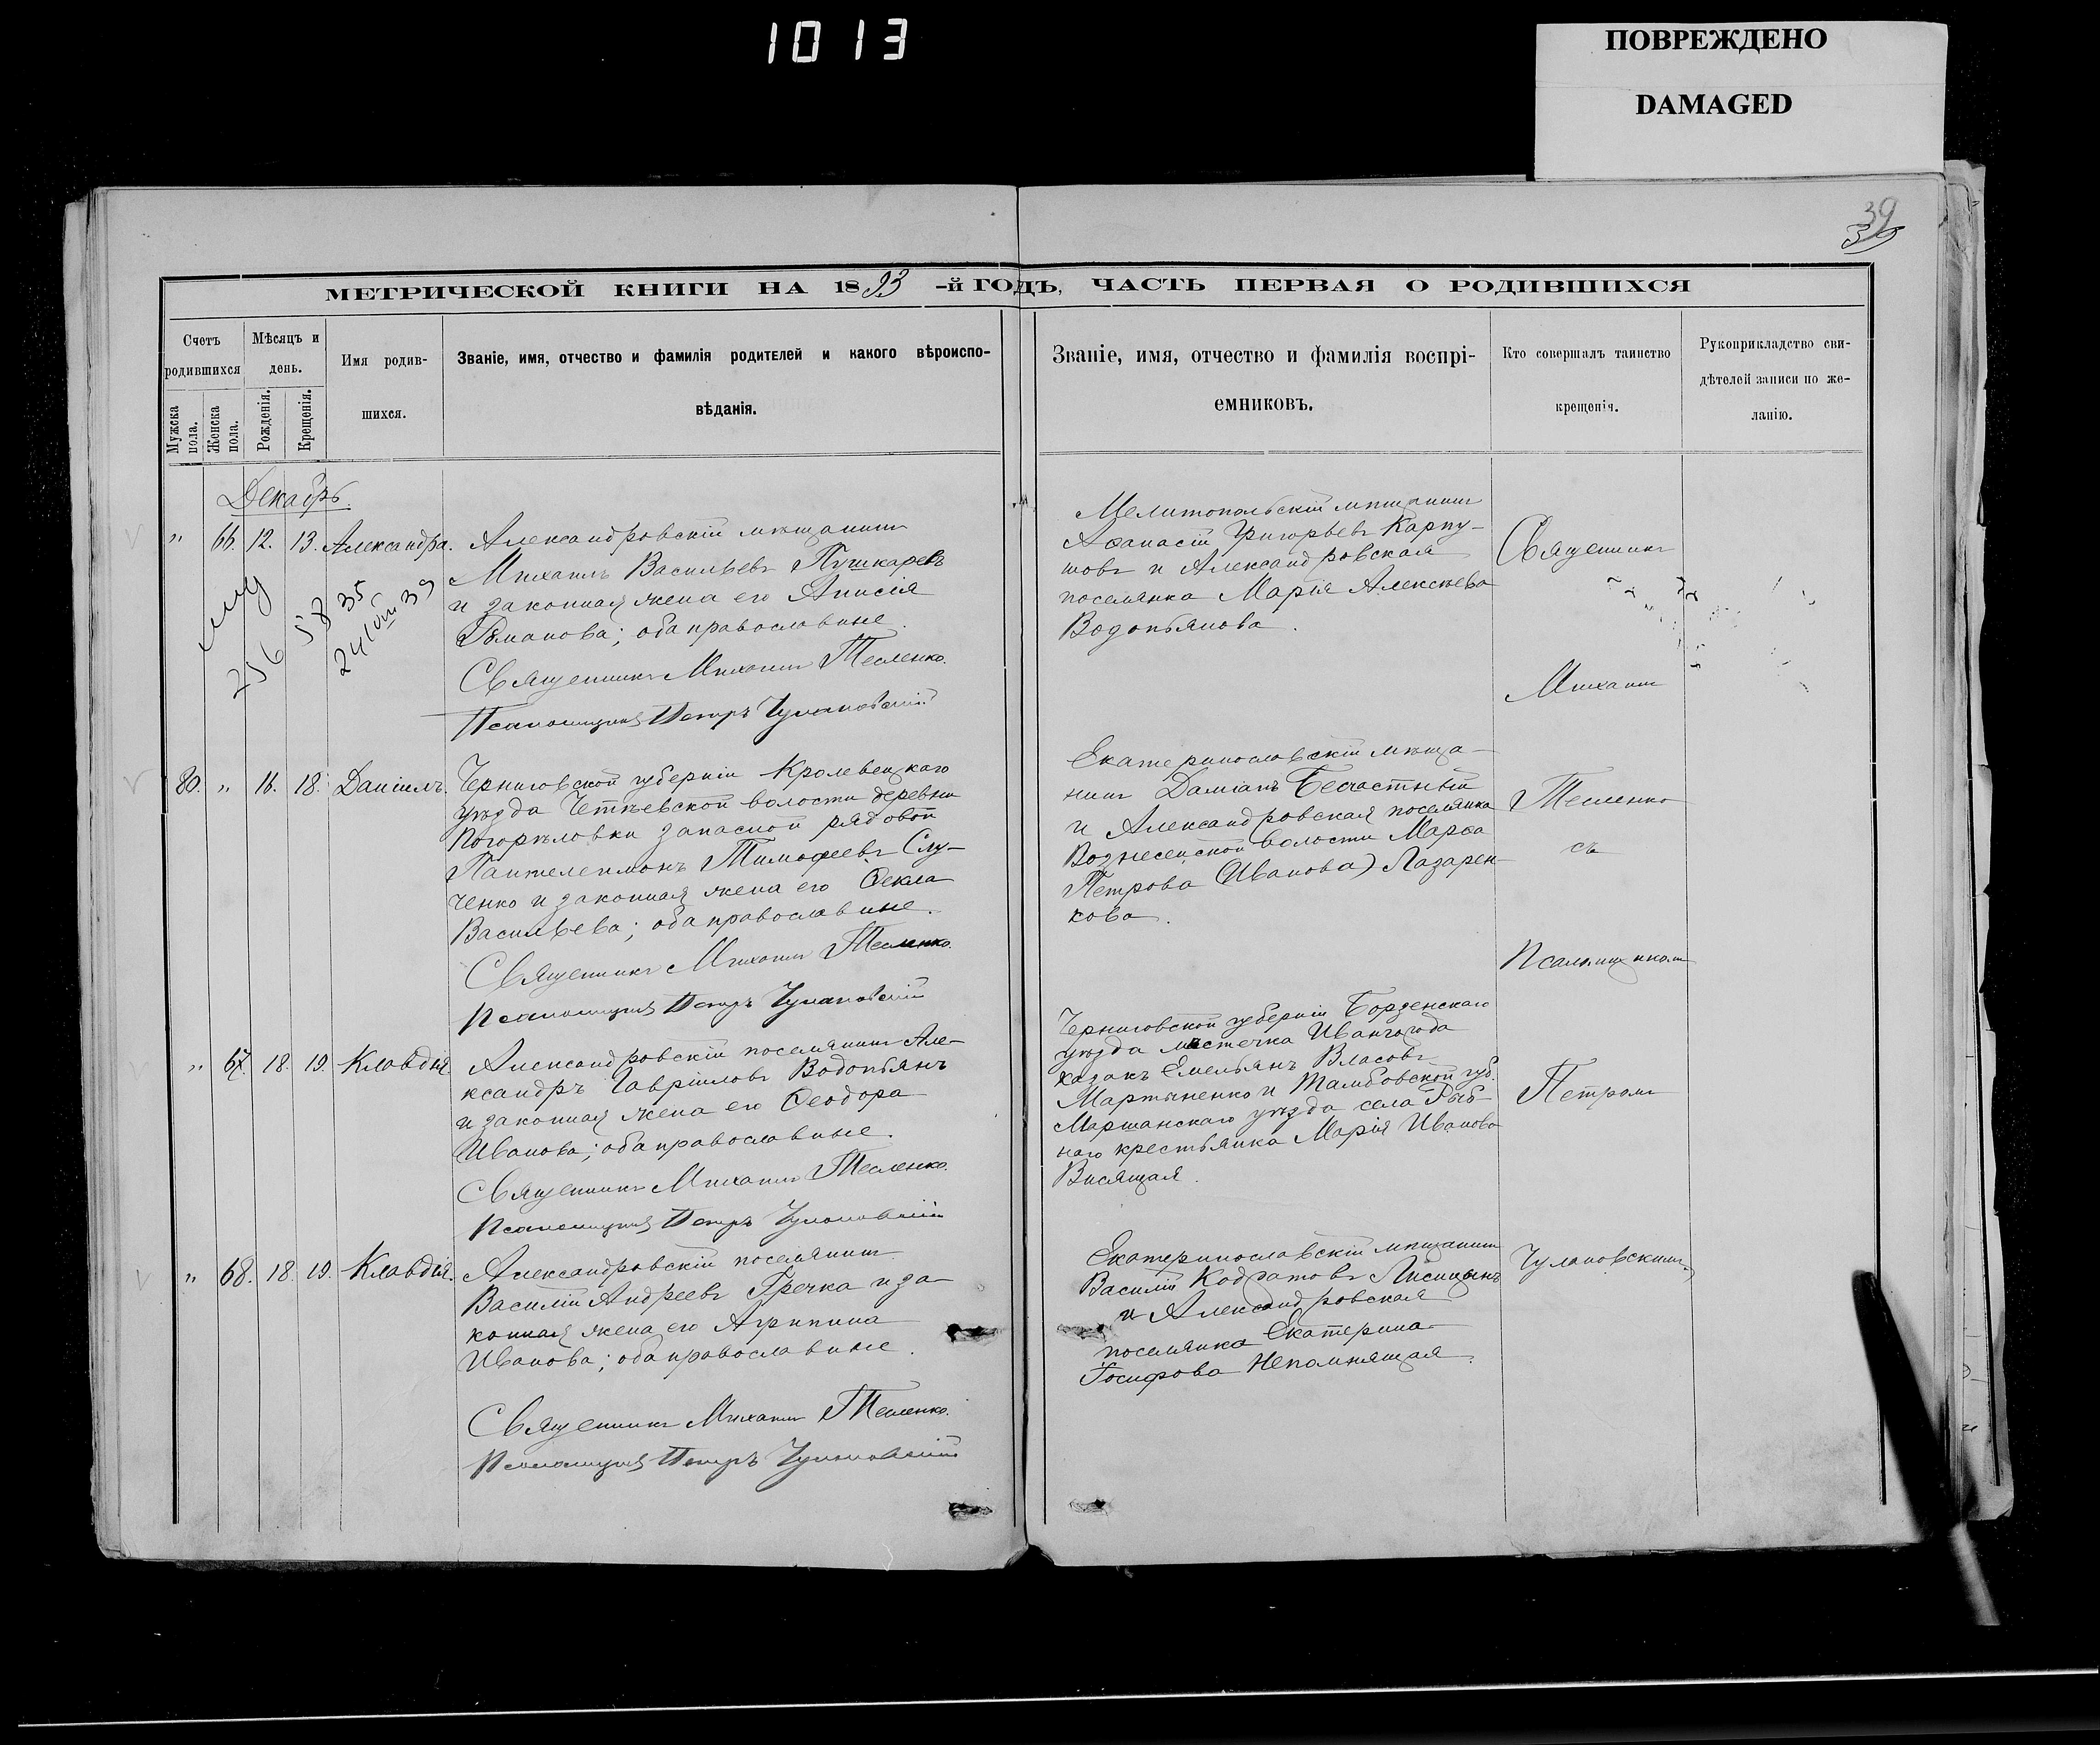 1013
ПОВРЕЖДЕНО
DAMAGED
39
МЕТРИЧЕСКОЙ КНИГИ НА 1893-й ГОДЪ, ЧАСТЬ ПЕРВАЯ О РОДИВШИХСЯ
Счетъ родившихся
Мужеска пола.
Женска пола.
Мѣсяцъ и день.
Рожденія.
Крещенія.
Имя родив-
шихся.
Званіе, имя, отчество и фамилія родителей и какого вѣроиспо-
вѣданія.
Званіе, имя, отчество и фамилія воспрі-
емниковъ.
Кто совершалъ таинство
крещенія.
Рукоприкладство сви-
дѣтелей записи по же-
ланію.
Декабрь.
" 66. 12. 13. Александра.
Александровскій мѣщанинъ
Михаилъ Васильевъ Пушкаревъ
и законная жена его Анисія
Романова; оба православные.
Священникъ Михаилъ Тесленко.
Псаломщикъ Петръ Чулановскій
Мелитопольскій мѣщанинъ
Аѳанасій Григорьевъ Карпу-
шовъ и Александровская
поселянка Марія Алексѣева
Водопьянова.
80. " 16. 18. Даніилъ.
Черниговской губерніи Кролевецкаго
уѣзда Четвевской волости деревни
Погорѣловки запасной рядовой
Пантелеимонъ Тимоѳеевъ Слу-
ченко и законная жена его Ѳекла
Васильева; оба православные.
Священникъ Михаилъ Тесленко.
Псаломщикъ Петръ Чулановскій
Екатеринославскій мѣща-
нинъ Даміанъ Бесчастный
и Александровская поселянка
Вознесенской волости Марѳа
Петрова (Иванова) Лазарен-
кова.
" 67. 18. 19. Клавдія
Александровскій поселянинъ Але-
ксандръ Гавріиловъ Водопьянъ
и законная жена его Ѳеодора
Иванова; оба православные.
Священникъ Михаилъ Тесленко.
Псаломщикъ Петръ Чулановскій
Черниговской губерніи Борзенскаго
уѣзда мѣстечка Ивангорода
казакъ Емельянъ Власовъ
Мартыненко и Тамбовской губ.
Моршанскаго уѣзда села Рыб-
наго крестьянка Марія Иванова
Висящая.
" 68. 18. 19. Клавдія.
Александровскій поселянинъ
Василій Андреевъ Гречка и за-
конная жена его Агрипина
Иванова; оба православные.
Священникъ Михаилъ Тесленко.
Псаломщикъ Петръ Чулановскій
Екатеринославскій мѣщанинъ
Василій Кодратовъ Лисицынъ
и Александровская
поселянка Екатерина
Іосифова Непомнящая.
Священникъ
Михаилъ
Тесленко
съ
Псаломщикомъ
Петромъ
Чулановскимъ